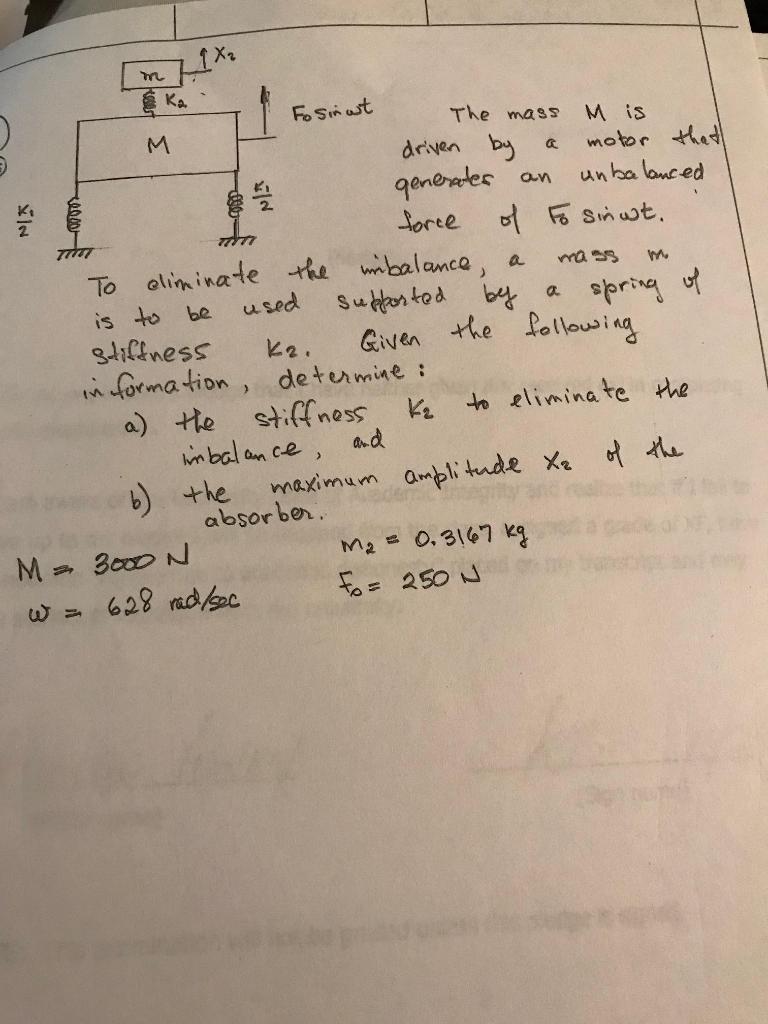 X2
m
K2
Fo sin wt
M
K1
2
K1
2
The mass M is
driven by a motor that
generates an unbalanced
force of Fo sin wt.
To eliminate the imbalance, a mass m
is to be used supported by a spring of
stiffness K2. Given the following
information, determine :
a) the stiffness K2 to eliminate the
imbalance, and
b) the maximum amplitude X2 of the
absorber.
M = 3000 N
m2 = 0.3167 kg
w = 628 rad/sec
Fo = 250 N